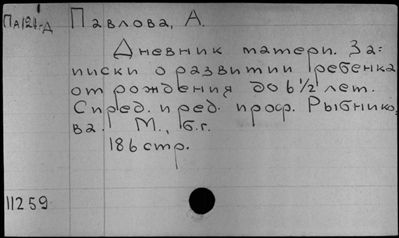 Па121-Д
Павлова, А.
Дневник матери. За=
писки о развитии ребенка
от рождения до 6 1/2 лет.
С пред. и ред. проф. Рыбнико,
ва. М., б.г.
186 стр.
11259